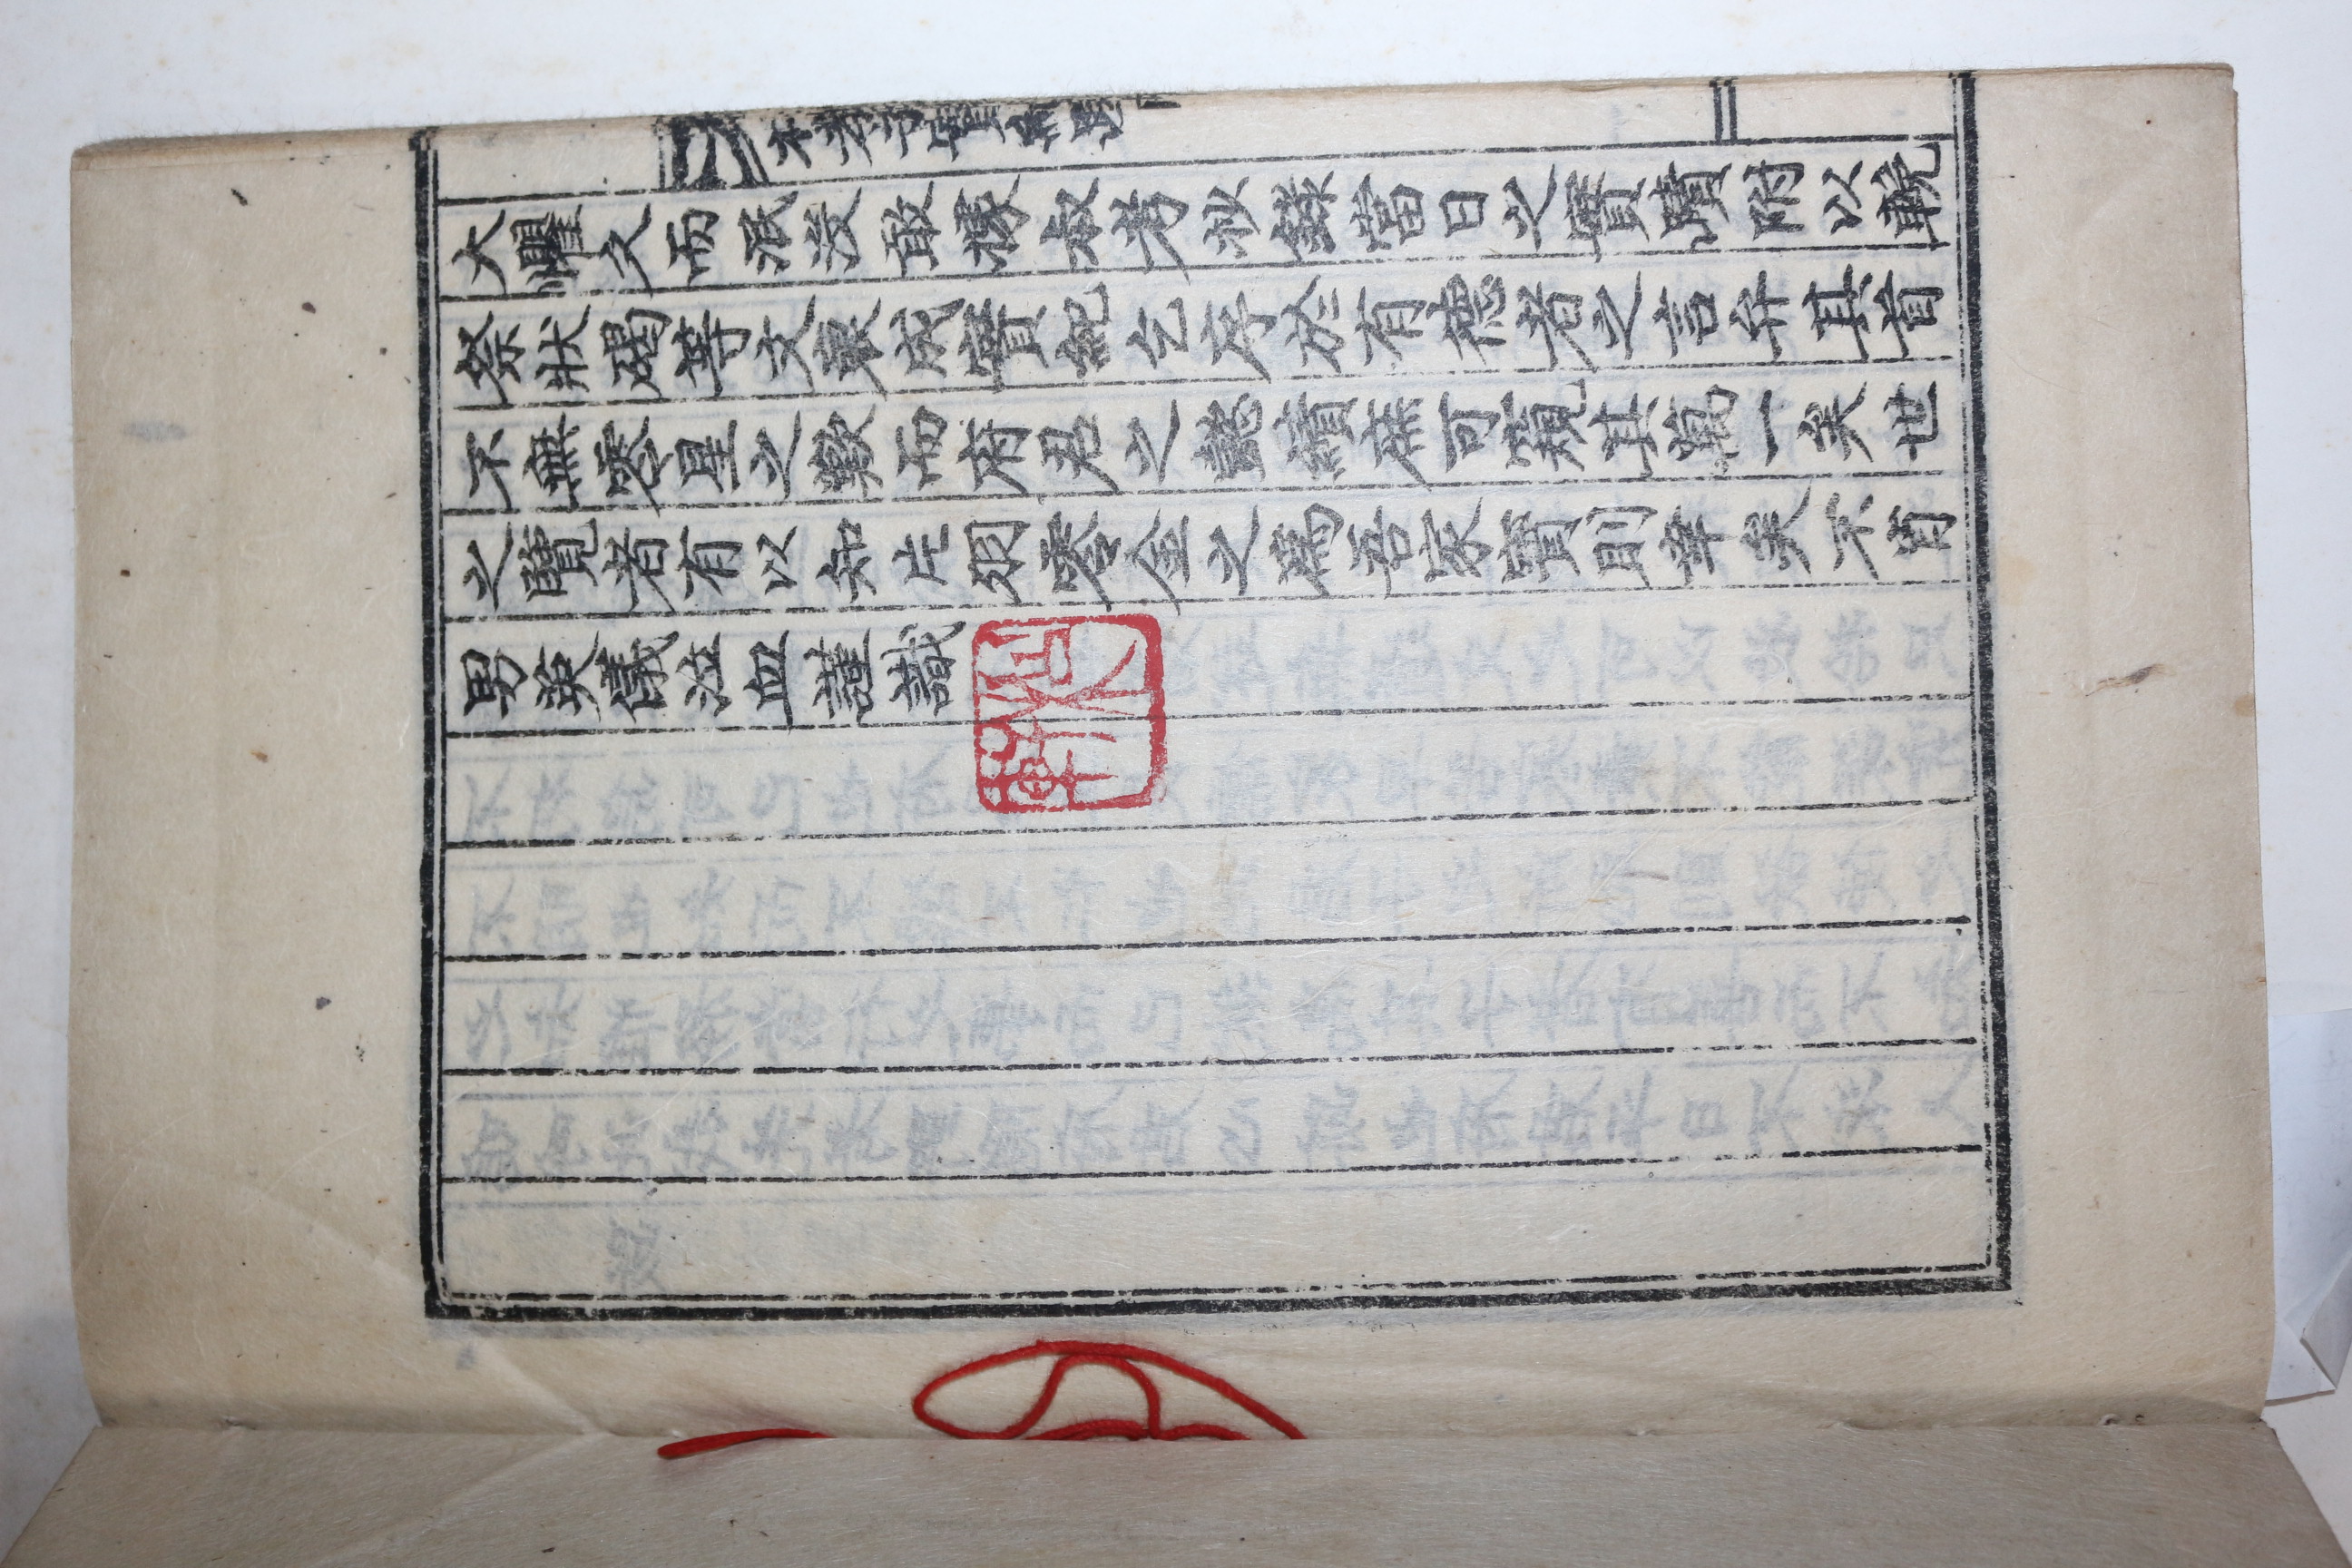 大懼久而泯沒敢據叔考抄錄當日之實蹟附以輓
祭狀碣等文裒成實記乞序於有德者之言弁其首
不無零星之歎而府君之懿績庶可窺其萬一矣世
之覽者有以知片羽零金之爲吾家寶則幸矣不肖
男英儀泣血謹識
孝子實紀
軒